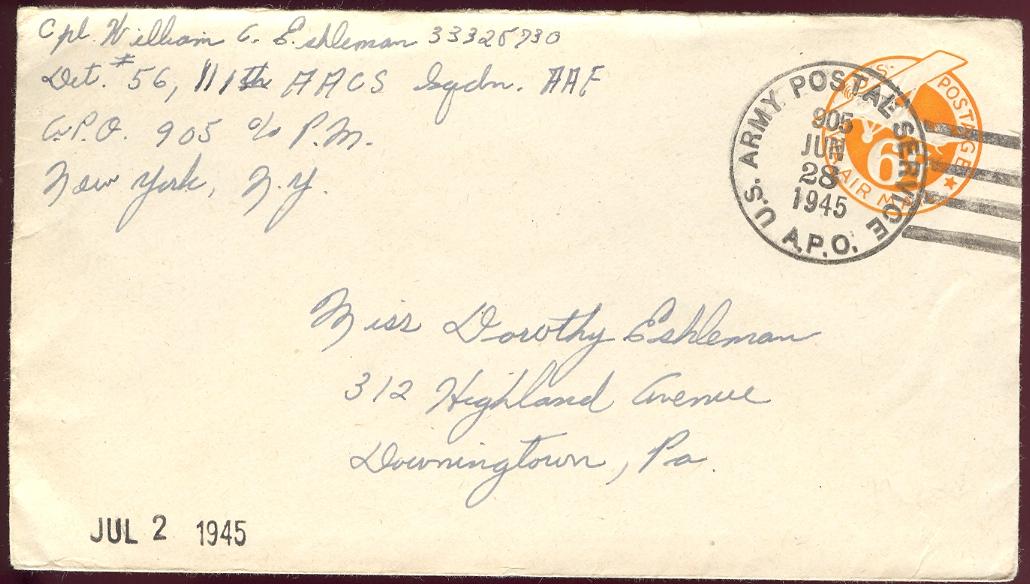 Cpl. William A. Eshleman 33325730
Det. #56, 11th AACS Sqdn. AAF
A.P.O. 905 c/o P.M.
New York, N.Y.
U.S. ARMY POSTAL SERVICE
905
JUN
28
1945
A.P.O.
U.S. POSTAGE
6
AIR MAIL
Miss Dorothy Eshleman
312 Highland Avenue
Downingtown, Pa.
JUL 2 1945